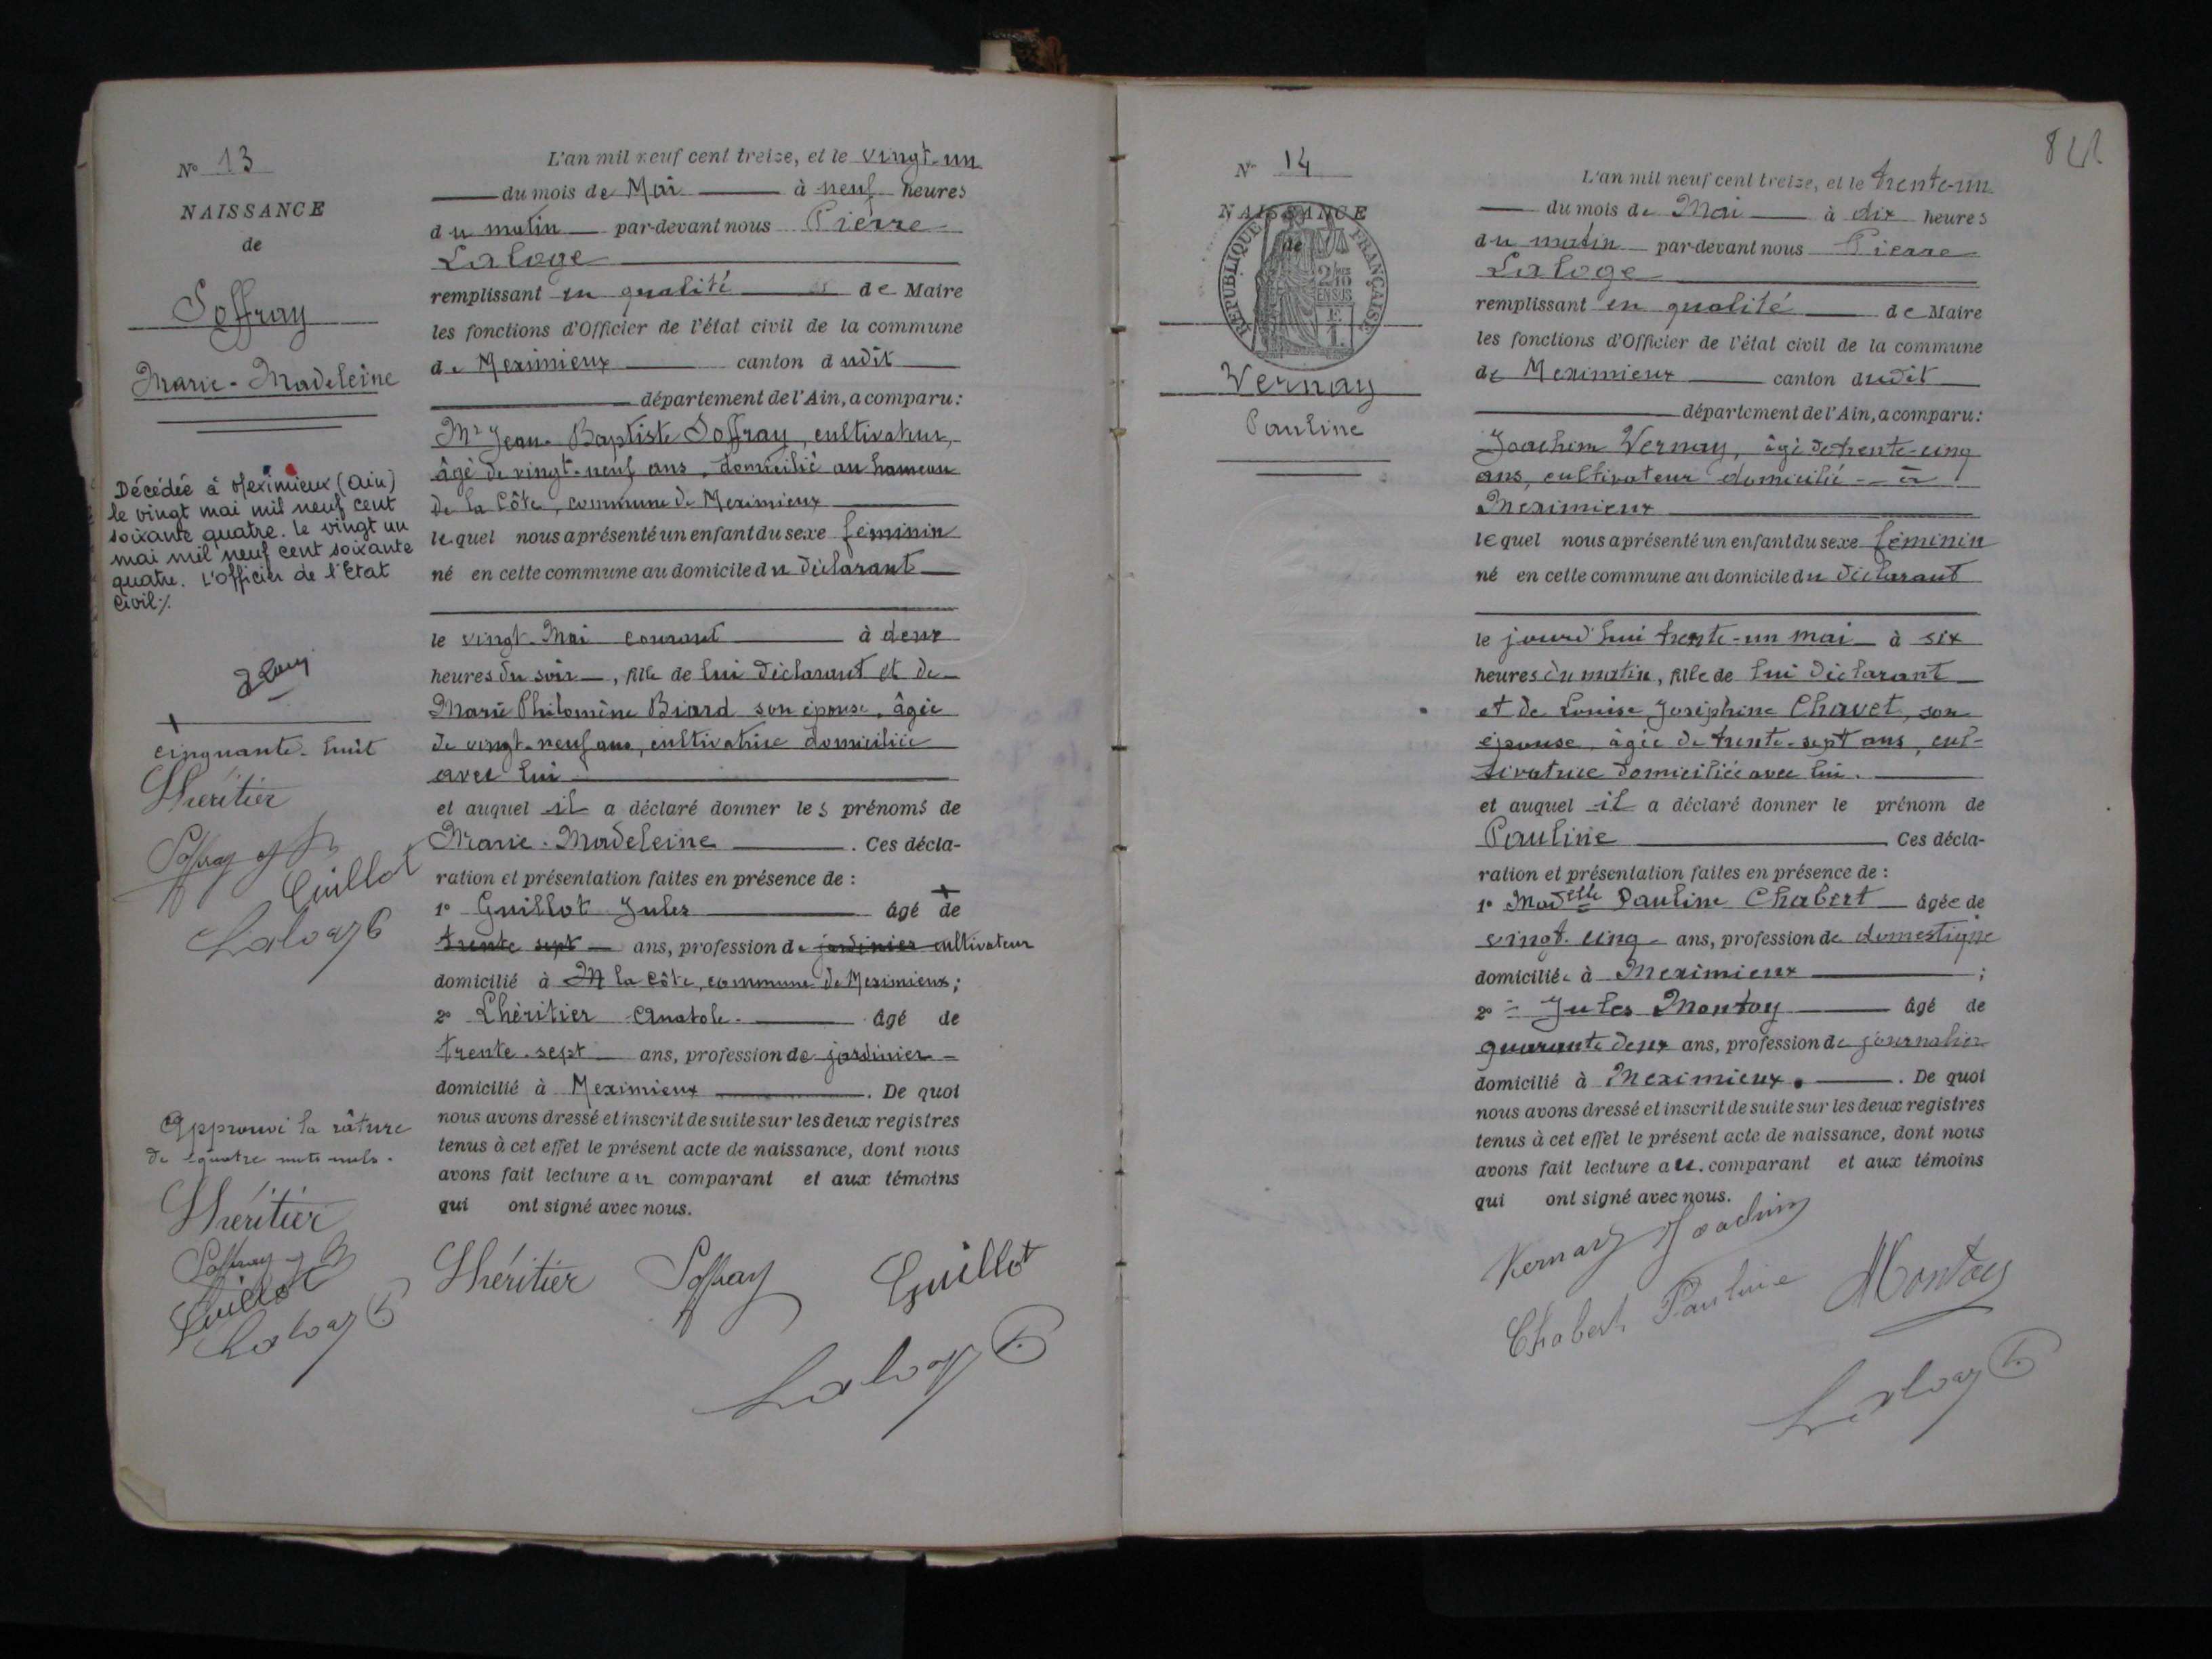 N° 13
NAISSANCE
de
Soffray
Marie-Madeleine
Décédée à Meximieux (Ain)
le vingt mai mil neuf cent
soixante quatre. Le vingt un
mai mil neuf cent soixante
quatre. L'officier de l'Etat
Civil ./.
+
cinquante-huit
Lhéritier
Soffray
Guillot
Laloge P
Approuvé la râture
de quatre mots nuls.
Lhéritier
Soffray
Guillot
Laloge P
L'an mil neuf cent treize, et le vingt-un
du mois de Mai à neuf heures
du matin par-devant nous Pierre
Laloge
remplissant en qualité de Maire
les fonctions d'Officier de l'état civil de la commune
de Meximieux canton dudit
département de l'Ain, a comparu :
Mr Jean-Baptiste Soffray, cultivateur,
âgé de vingt-neuf ans, domicilié au hameau
de la Côte, commune de Meximieux
lequel nous a présenté un enfant du sexe féminin
né en cette commune au domicile du déclarant
le vingt-Mai courant à deux
heures du soir, fille de lui déclarant et de
Marie Philomène Biard son épouse, âgée
de vingt-neuf ans, cultivatrice domiciliée
avec lui
et auquel il a déclaré donner les prénoms de
Marie-Madeleine. Ces décla-
ration et présentation faites en présence de :
1° Guillot Jules âgé de +
trente sept ans, profession de jardinier cultivateur
domicilié à M la Côte, commune de Meximieux ;
2° Lhéritier Anatole. âgé de
trente-sept ans, profession de jardinier
domicilié à Meximieux. De quoi
nous avons dressé et inscrit de suite sur les deux registres
tenus à cet effet le présent acte de naissance, dont nous
avons fait lecture au comparant et aux témoins
qui ont signé avec nous.
Lhéritier Soffray Guillot
Laloge P
N° 14
NAISSANCE
de
RÉPUBLIQUE FRANÇAISE
2/10
EN SUS
Vernay
Pauline
L'an mil neuf cent treize, et le trente-un
du mois de Mai à dix heures
du matin par-devant nous Pierre
Laloge
remplissant en qualité de Maire
les fonctions d'Officier de l'état civil de la commune
de Meximieux canton dudit
département de l'Ain, a comparu :
Joachim Vernay, âgé de trente-cinq
ans, cultivateur domicilié à
Meximieux
lequel nous a présenté un enfant du sexe féminin
né en cette commune au domicile du déclarant
le jourd'hui trente-un mai à six
heures du matin, fille de lui déclarant
et de Louise Joséphine Chavet, son
épouse, âgée de trente-sept ans, cul-
tivatrice domiciliée avec lui.
et auquel il a déclaré donner le prénom de
Pauline Ces décla-
ration et présentation faites en présence de :
1° Madelle Pauline Chabert âgée de
vingt-cinq ans, profession de domestique
domiciliée à Meximieux ;
2° Jules Montoy âgé de
quarante deux ans, profession de journalier
domicilié à Meximieux. De quoi
nous avons dressé et inscrit de suite sur les deux registres
tenus à cet effet le présent acte de naissance, dont nous
avons fait lecture au comparant et aux témoins
qui ont signé avec nous.
Vernay Joachim
Chabert Pauline Montoy
Laloge P